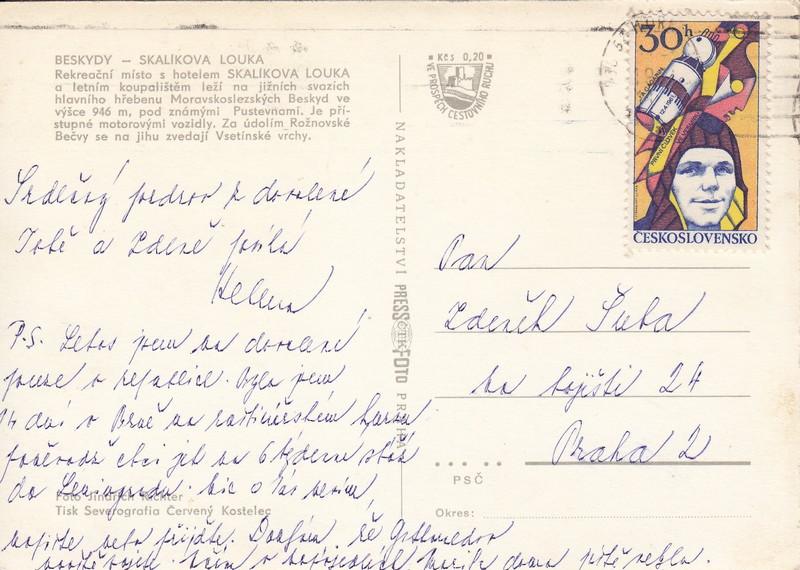 BESKYDY — SKALÍKOVA LOUKA
Rekreační místo s hotelem SKALÍKOVA LOUKA
a letním koupalištěm leží na jižních svazích
hlavního hřebenu Moravskoslezských Beskyd ve
výšce 946 m, pod známými Pustevnami. Je pří-
stupné motorovými vozidly. Za údolím Rožnovské
Bečvy se na jihu zvedají Vsetínské vrchy.
Srdečný pozdrav z dovolené
Tobě a Zdeně posílá
Helena
P.S. Letos jsem na dovolené
pouze v republice. Byla jsem
14 dní v Brně na
poněvadž chci jet na 6 týdenní stáž
do Leningradu. Nic o Vás nevím,
napište nebo přijďte. Doufám, že
doma ještě
Foto Jindřich Richter
Tisk Severografia Červený Kostelec
Kčs 0,20
VE PROSPĚCH CESTOVNÍHO RUCHU
NAKLADATELSTVÍ PRESSFOTO PRAHA
ČTK
30h
J. A. GAGARIN
12.4.1961
PRVNÍ ČLOVĚK VE VESMÍRU
ČESKOSLOVENSKO
Pan
Zdeněk Šuba
Na bojišti 24
Praha 2
PSČ
Okres: